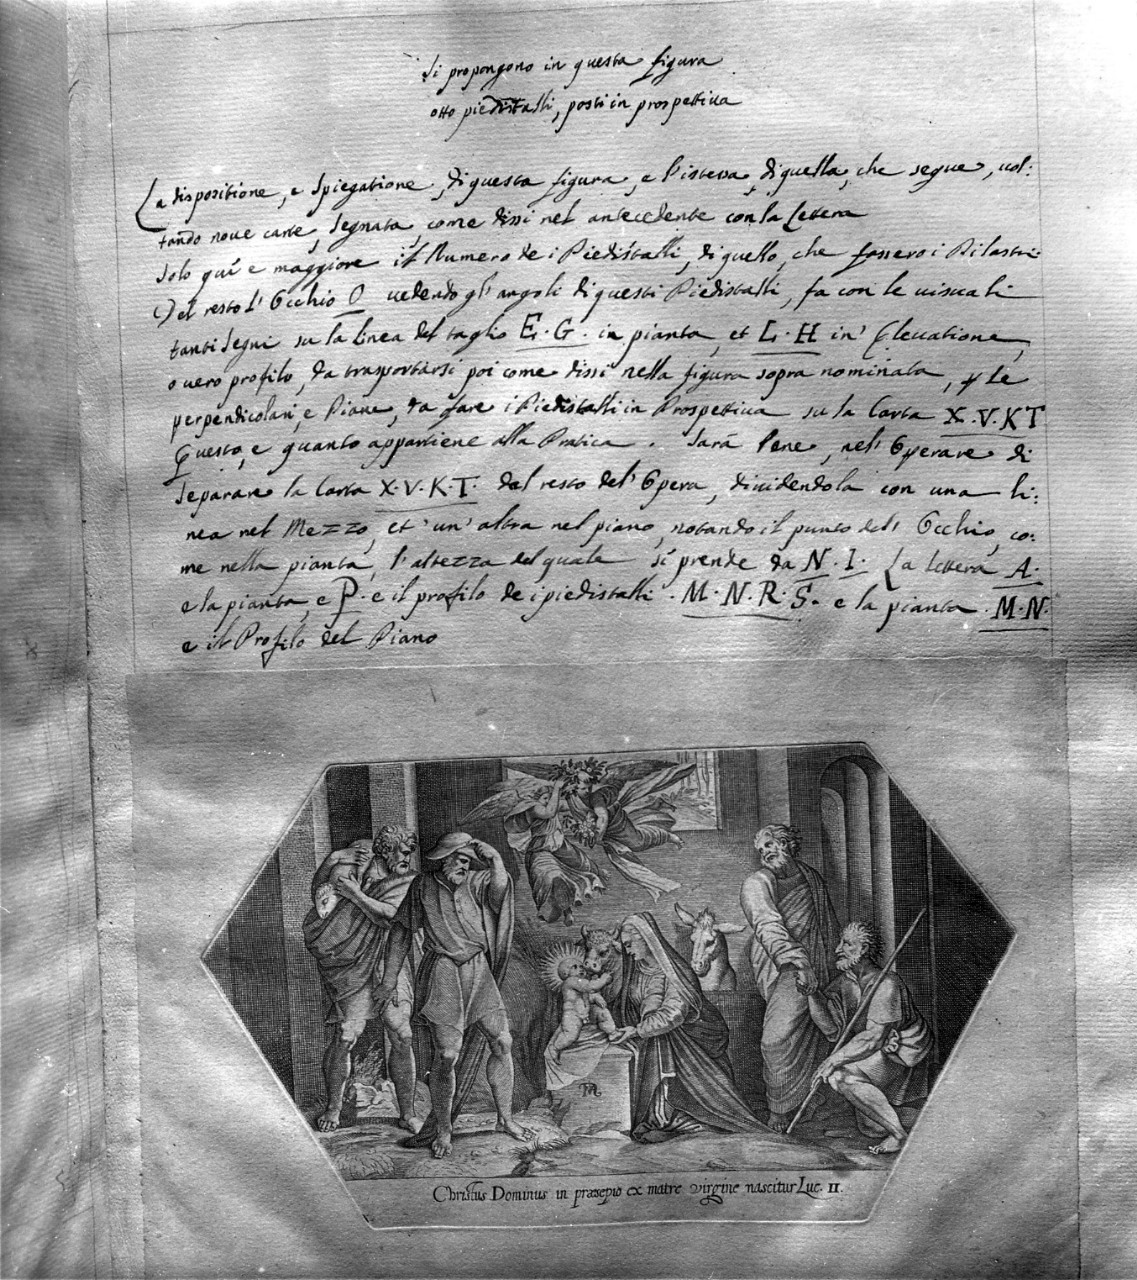 Si propongono in questa figura
otto piedistalli, posti in prospettiva
La dispositione, e spiegatione, di questa figura, e l'istessa, di quella, che segue, uol:
tando noue carte, segnata, come dissi nel antecedente con la Lettera
Solo qui e maggiore il Numero de i Piedistalli, di quello, che fossero i Pilastri.
Del resto l'Occhio O uedendo gl'angoli di questi Piedistalli, fa con le uisuali
tanti segni su la linea del taglio E. G. in pianta, et L. H in Eleuatione,
o uero profilo, da trasportarsi poi come dissi nella figura sopra nominata, p le
perpendicolari, e Piane, da fare i Piedistalli in Prospettiua su la Carta X.V.KT
Questo, e quanto appartiene alla Pratica. Sarà bene, nel' Operare di
separare la Carta X.V.K.T. dal resto del' Opera, diuidendola con una li:
nea nel Mezzo, et un' altra nel piano, notando il punto dell Occhio, co:
me nella pianta, l'altezza del quale si prende da N. I. La lettera A.
e la pianta, e P. e il profilo de i piedistalli. M. N. R. S. e la pianta. M. N.
e il Profilo del Piano
Christus Dominus in præsepio ex matre virgine nascitur Luc. II.